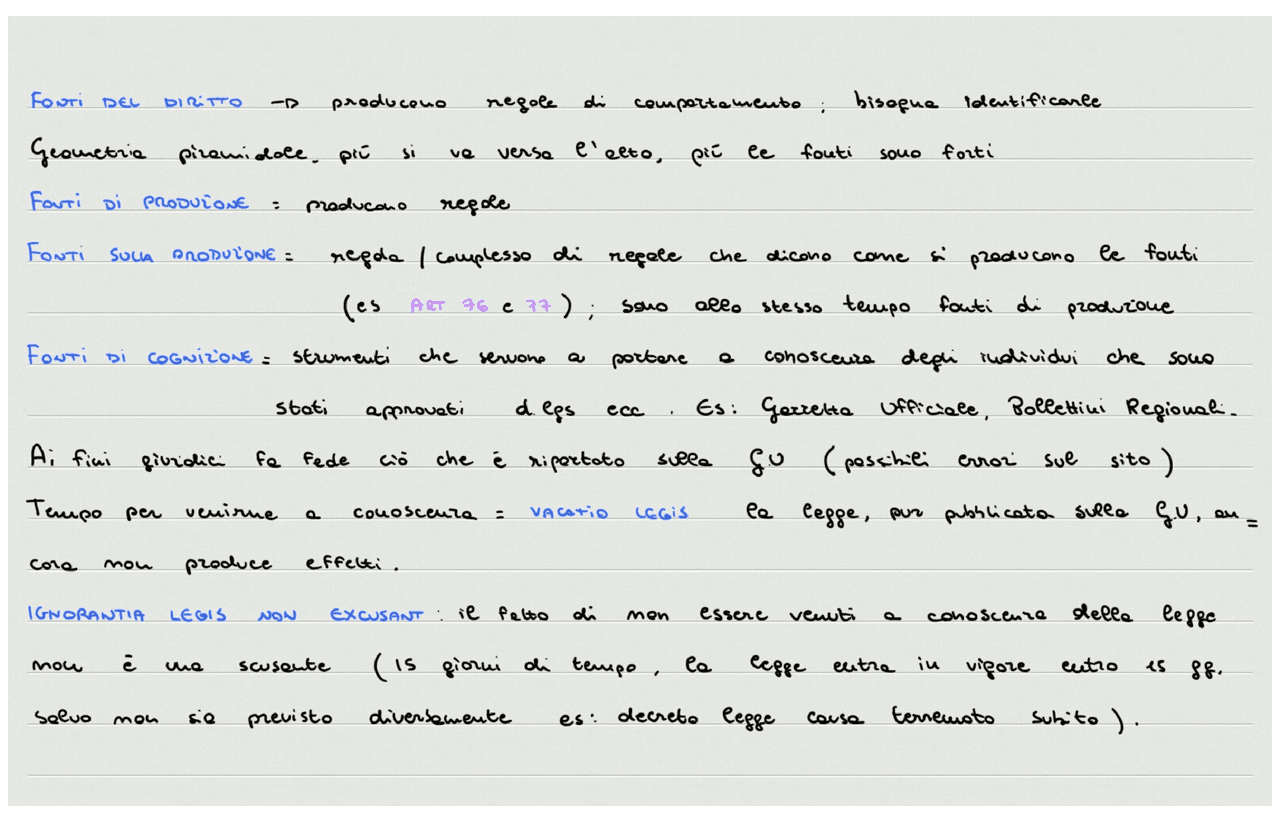 FONTI DEL DIRITTO → producono regole di comportamento; bisogna identificarle
Geometria piramidale. più si va verso l'alto, più le fonti sono forti
FONTI DI PRODUZIONE = producono regole
FONTI SULLA PRODUZIONE = regola / complesso di regole che dicono come si producono le fonti
(es ART 76 e 77); sono allo stesso tempo fonti di produzione
FONTI DI COGNIZIONE = strumenti che servono a portare a conoscenza degli individui che sono
stati approvati d.lgs ecc. Es: Gazzetta Ufficiale, Bollettini Regionali.
Ai fini giuridici fa fede ciò che è riportato sulla GU (possibili errori sul sito)
Tempo per venirne a conoscenza = VACATIO LEGIS la legge, pur pubblicata sulla G.U, an=
cora non produce effetti.
IGNORANTIA LEGIS NON EXCUSANT: il fatto di non essere venuti a conoscenza della legge
non è una scusante (15 giorni di tempo, la legge entra in vigore entro 15 gg.
salvo non sia previsto diversamente es: decreto legge causa terremoto subito).